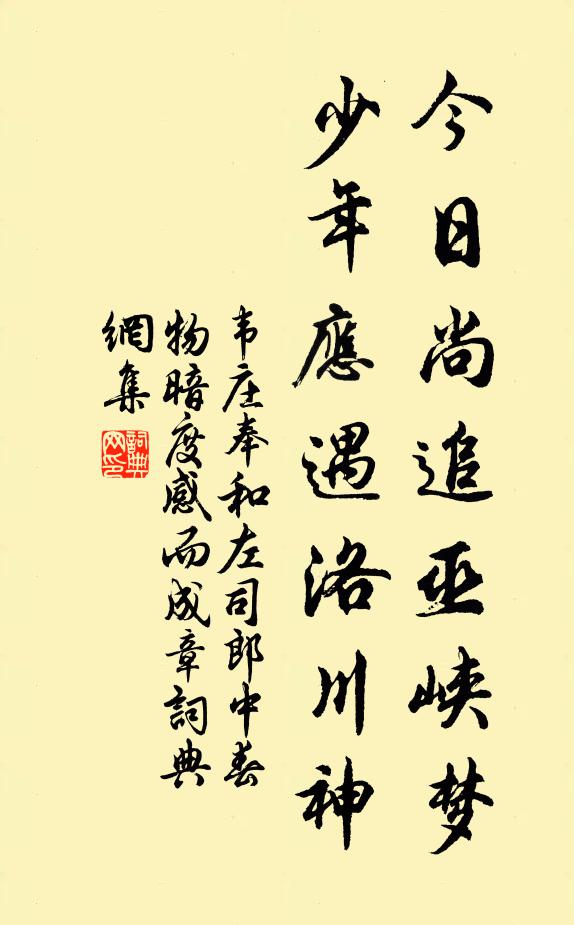 今日尚追巫峡梦
少年應遇洛川神
韦庄奉和左司郎中春
物暗度感而成章詞典
網集
詞典
网印